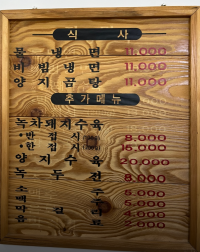 식 사
물 냉 면 11,000
비 빔 냉 면 11,000
양 지 곰 탕 11,000
추 가 메 뉴
녹차돼지수육
• 반 접 시 8,000
• 한 접 시 15,000
양 지 수 육 20,000
녹 두 전 8,000
소 주 5,000
맥 주 5,000
막 걸 리 4,000
음 료 2,000